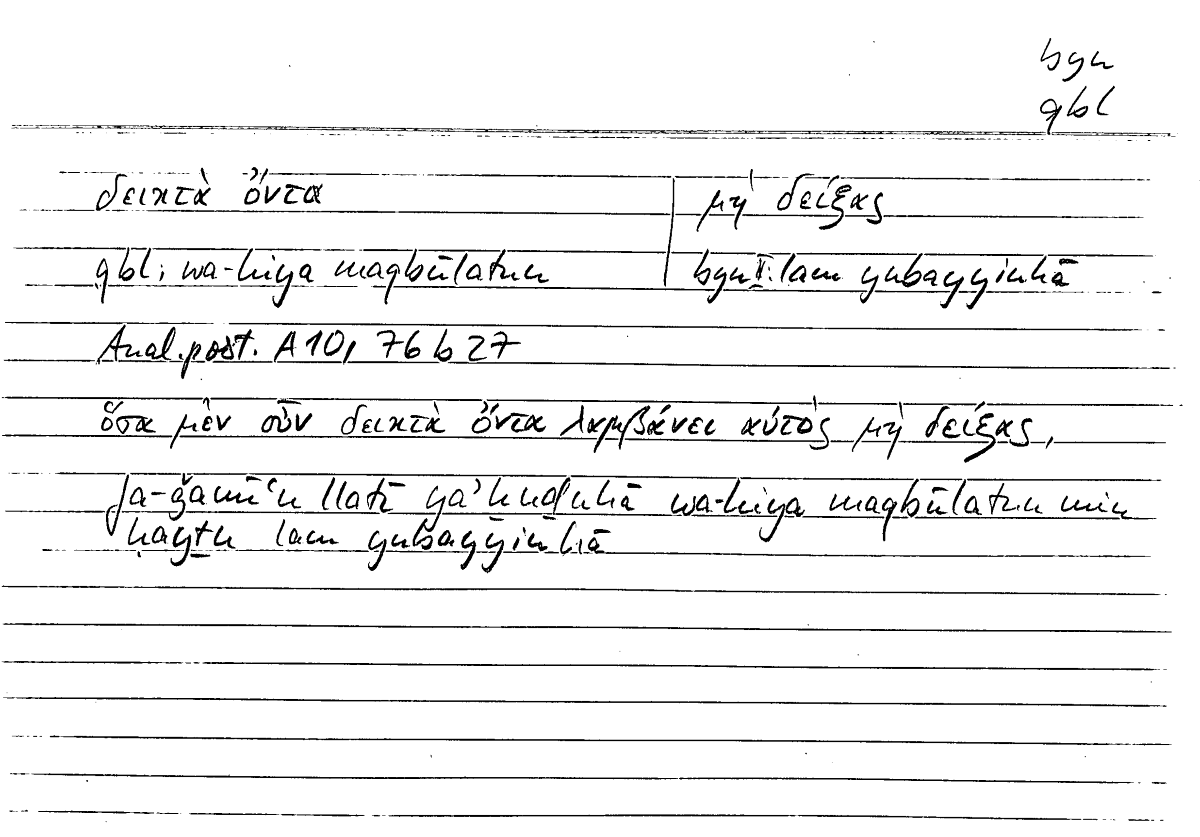 byn
qbl
δεικτὰ ὄντα | μὴ δείξας
qbl: wa-hiya maqbūlatun | byn II: lam yubayyinhā
Anal. post. A 10, 76 b 27
ὅσα μὲν οὖν δεικτὰ ὄντα λαμβάνει αὐτὸς μὴ δείξας,
fa-ǧamīʿu llatī yaʾḫuḏuhā wa-hiya maqbūlatun min
ḥayṯu lam yubayyinhā